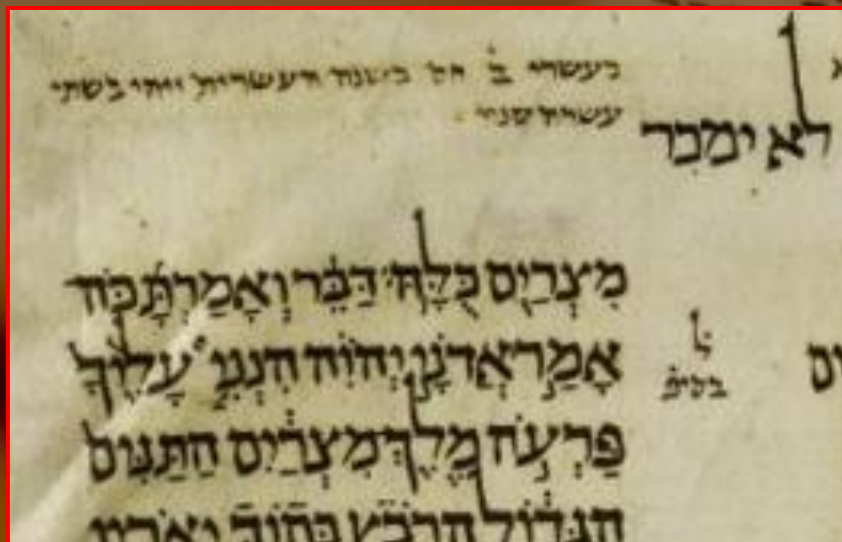 בעשרי ב̇ הל בשנה העשרית ויהי בשתי
עשרה שנה
לא ימכר
מִצְרַ֖יִם כֻּלָּֽהּ׃ דַּבֵּ֨ר וְאָמַרְתָּ֜ כֹּה
אָמַ֣ר אֲדֹנָ֣י יְהוִ֗ה הִנְנִ֤י עָלֶ֙יךָ֙
פַּרְעֹ֣ה מֶֽלֶךְ־ מִצְרַ֔יִם הַתַּנִּים
הַגָּד֔וֹל הָרֹבֵ֖ץ בְּת֣וֹךְ יְאֹרָ֑יו
ל̇